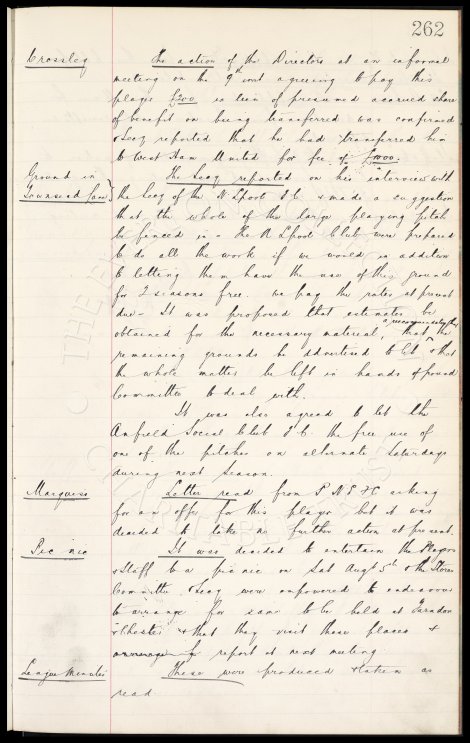 262
Crossley The action of the Directors at an informal
meeting on the 9th inst agreeing to pay this
player £300 in lieu of presumed accrued share
of benefit on being transferred was confirmed
& Secy reported that he had transferred him
to West Ham United for fee of
Ground in Townsend Lane The Secy reported on his interview with
the Secy of the N L'pool F C & made a suggestion
that the whole of the large playing pitch
be fenced in & the N L'pool Club were prepared
to do all the work if we would in addition
to letting them have the use of this ground
for 2 seasons free. we pay the rates at present
due - It was proposed that estimates be
obtained for the necessary material, that the
remaining grounds be advertised to let & that
the whole matter be left in hands of ground
Committee to deal with.
It was also agreed to let the
Anfield Social Club F C the free use of
one of the pitches on alternate Saturdays
during next season.
Marquis Letter read from P N E F C asking
for an offer for this player but it was
decided to take no further action at present.
Pic nic It was decided to entertain the Players
& Staff to a pic nic on Sat Augt 5th & the Stores
Committee & Secy were empowered to endeavour
to arrange for same to be held at Farndon
& Chester & that they visit those places &
report at next meeting
League Minutes These were produced & taken as
read